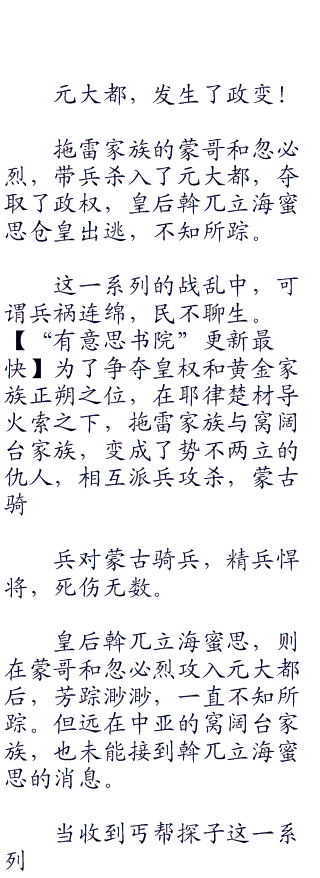 元大都，发生了政变！
拖雷家族的蒙哥和忽必
烈，带兵杀入了元大都，夺
取了政权，皇后斡兀立海蜜
思仓皇出逃，不知所踪。
这一系列的战乱中，可
谓兵祸连绵，民不聊生。
【“有意思书院”更新最
快】为了争夺皇权和黄金家
族正朔之位，在耶律楚材导
火索之下，拖雷家族与窝阔
台家族，变成了势不两立的
仇人，相互派兵攻杀，蒙古
骑
兵对蒙古骑兵，精兵悍
将，死伤无数。
皇后斡兀立海蜜思，则
在蒙哥和忽必烈攻入元大都
后，芳踪渺渺，一直不知所
踪。但远在中亚的窝阔台家
族，也未能接到斡兀立海蜜
思的消息。
当收到丐帮探子这一系
列